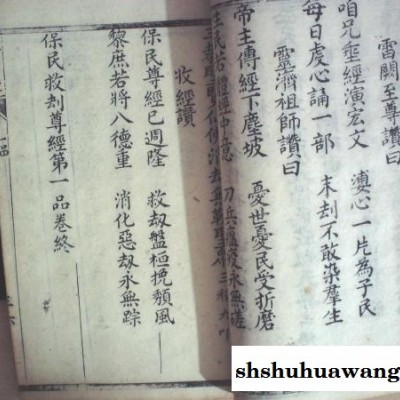 雪關至尊讚曰
咱兄垂經演宏文 婆心一片為子民
每日虔心誦一部 末刦不敢染羣生
靈濟祖師讚曰
帝主傳經下塵坡 憂世憂民受折磨
刀兵瘟疫永無磋
收經讚
保民尊經已週隆 救刼盤桓挽頹風
黎庶若將八德重 消化惡刼永無踪
保民救刦尊經第一品卷終
shshuhuawang